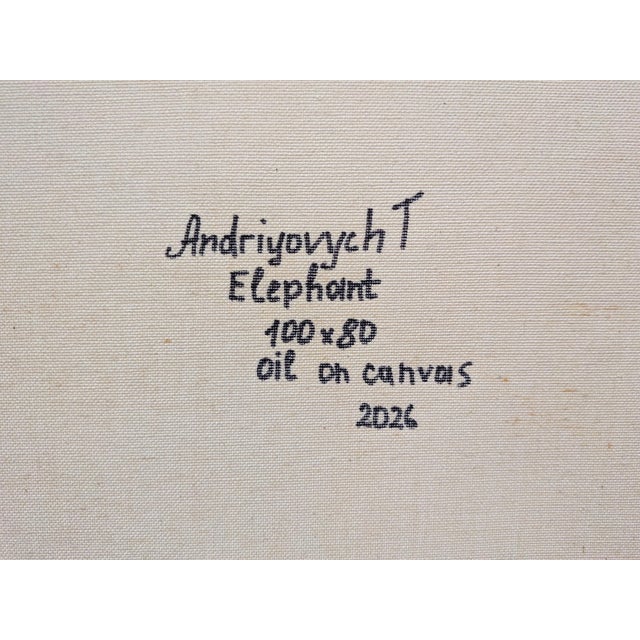 Andriyovych T
Elephant
100x80
oil on canvas
2026